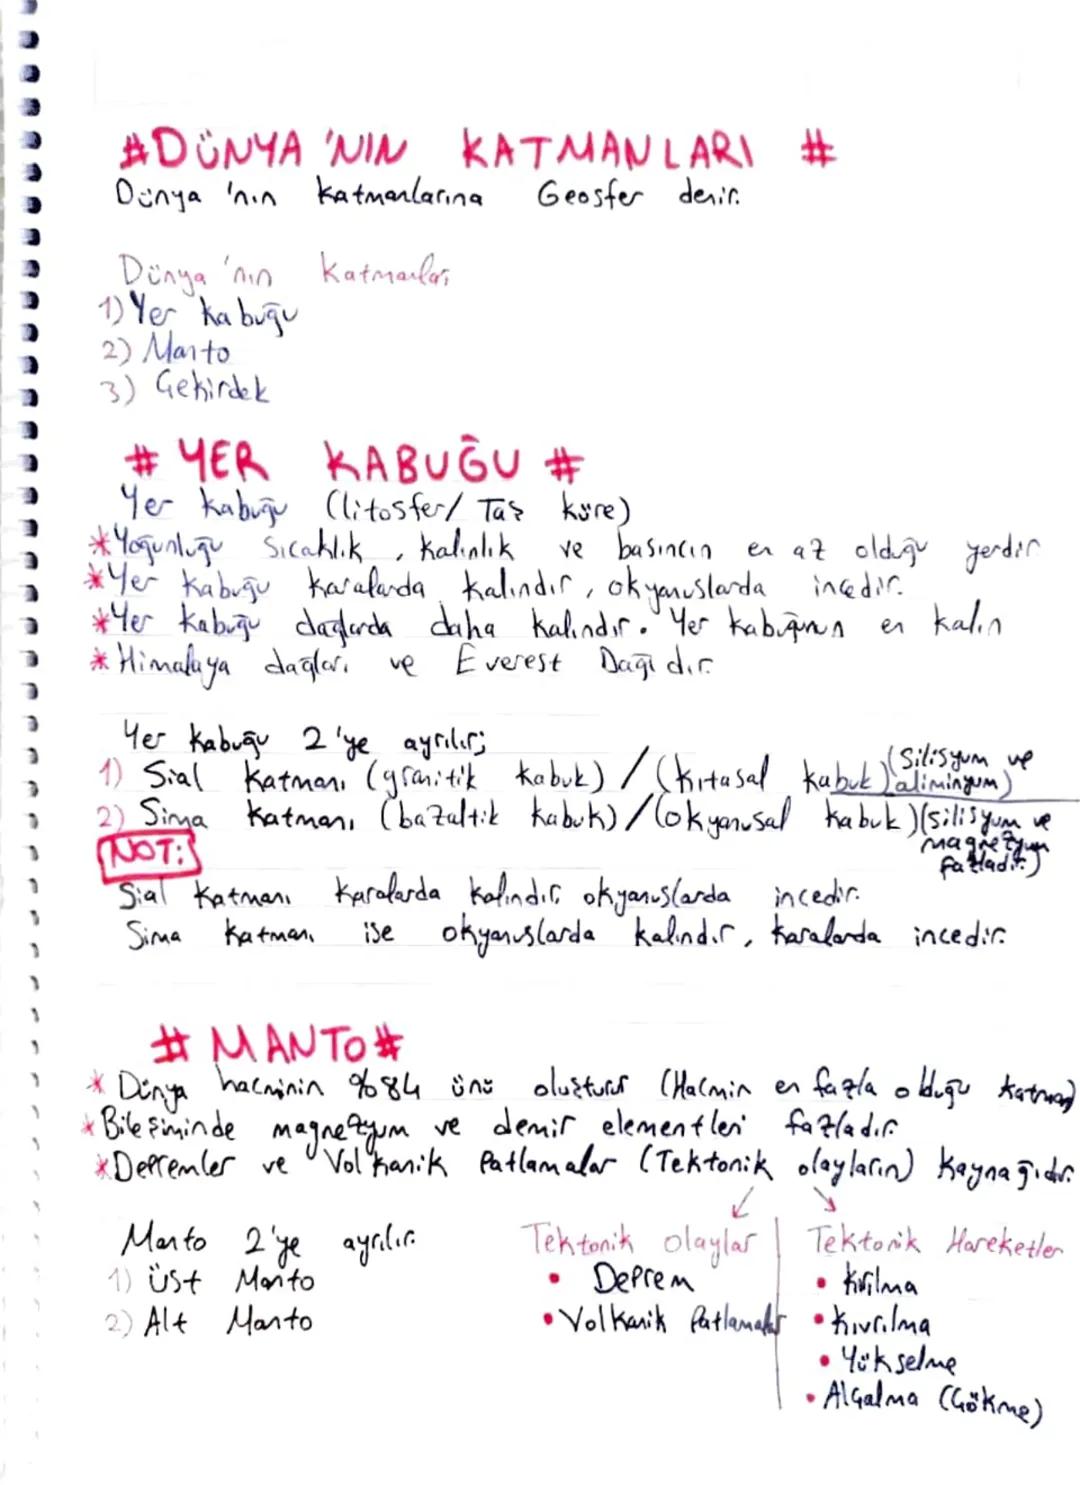 #DÜNYA'NIN KATMANLARI #
Dünya'nın katmanlarına Geosfer denir.
Dünya'nın Katmanları
1) Yer kabuğu
2) Manto
3) Çekirdek
# YER KABUĞU #
Yer kabuğu (litosfer/ Taş küre)
*Yoğunluğu Sıcaklık, kalınlık ve basıncın en az olduğu yerdir
*Yer kabuğu karalarda kalındır, okyanuslarda incedir.
*Yer kabuğu dağlarda daha kalındır. Yer kabuğunun en kalın
*Himalaya dağları ve Everest Dağıdır.
Yer kabuğu 2'ye ayrılır;
1) Sial Katmanı (granitik kabuk) / (kıtasal kabuk) (Silisyum ve aliminyum)
2) Sima Katmanı (bazaltik kabuk) / (okyanusal kabuk) (silisyum ve magnezyum fazladır.)
NOT:
Sial Katmanı karalarda kalındır, okyanuslarda incedir.
Sima Katmanı ise okyanuslarda kalındır, karalarda incedir.
# MANTO#
* Dünya hacminin %84 ünü oluşturur (Hacmin en fazla olduğu katman)
*Bileşiminde magnezyum ve demir elementleri fazladır.
*Depremler ve Volkanik Patlamalar (Tektonik olayların) kaynağıdır.
Manto 2'ye ayrılır.
1) Üst Manto
2) Alt Manto
Tektonik olaylar
• Deprem
• Volkanik Patlamalar
Tektonik Hareketler
• Kırılma
• Kıvrılma
• Yükselme
• Alçalma (Çökme)